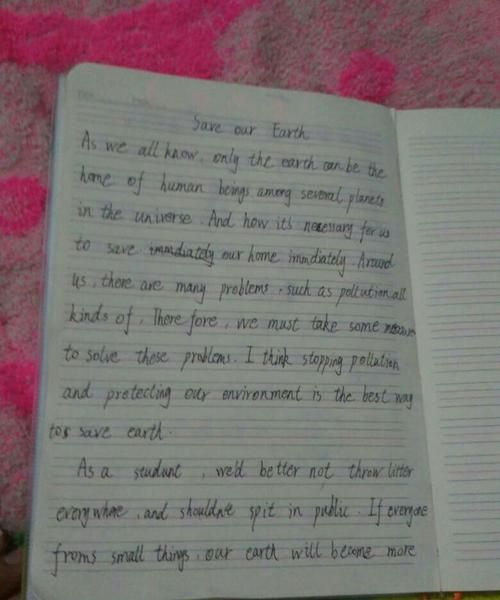 Save our Earth
As we all know, only the earth can be the
home of human beings among several planets
in the universe. And how it's necessary for us
to save immediately our home immediately. Around
us, there are many problems, such as pollution all
kinds of. There fore, we must take some
to solve these problems. I think stopping pollution
and protecting our environment is the best way
to save earth.
As a student, we'd better not throw litter
everywhere, and shouldn't spit in public. If everyone
froms small things, our earth will become more